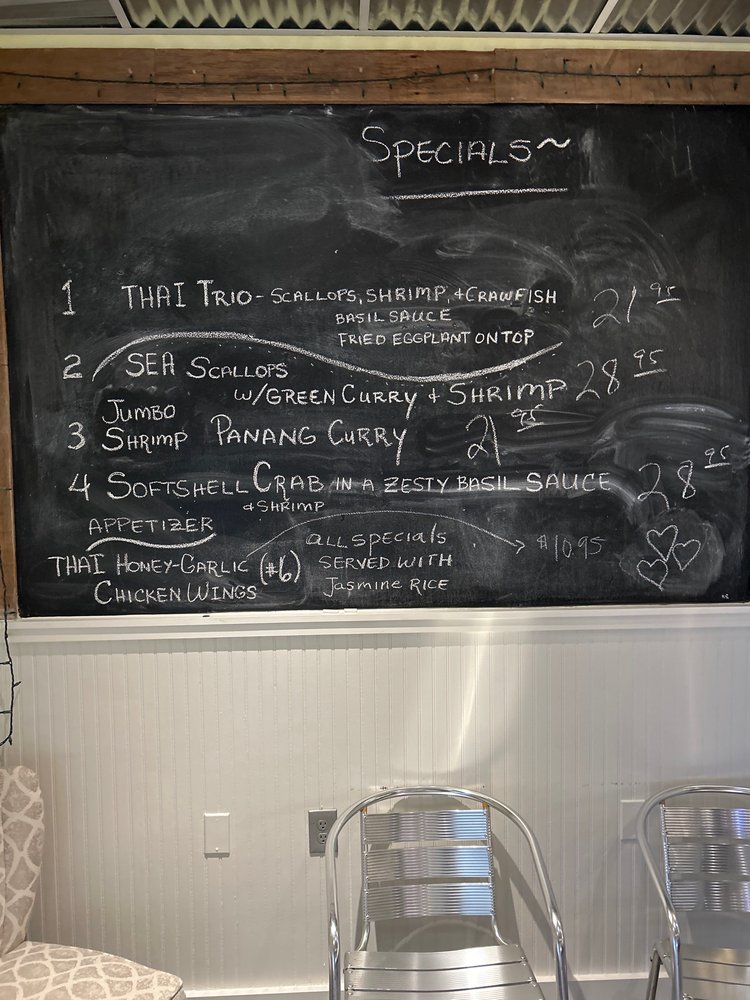 SPECIALS~
1 THAI TRIO - SCALLOPS, SHRIMP, + CRAWFISH 21 95
BASIL SAUCE
FRIED EGGPLANT ON TOP
2 SEA SCALLOPS
W/GREEN CURRY + SHRIMP 28 95
3 JUMBO
SHRIMP PANANG CURRY 21 95
4 SOFTSHELL CRAB IN A ZESTY BASIL SAUCE 28 95
+ SHRIMP
APPETIZER
THAI HONEY-GARLIC (#6) $10.95
CHICKEN WINGS
ALL SPECIALS
SERVED WITH
Jasmine RICE